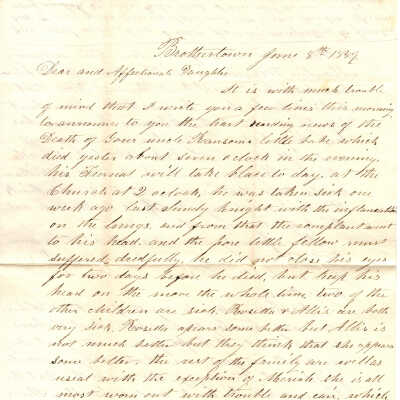 Brothertown June 8th 1859
Dear and Affectionate Daughter
It is with much trouble
of mind that I write you a few lines this morning
to announce to you the hart rending news of the
Death of Your uncle Ransoms little babe which
died yester about seven oclock in the evening.
his Funeral will take place to day. at the
Church at 2 oclock, he was taken sick one
week ago last sunday knight with the inflamation
on the lungs. and from that the complant went
to his head. and the pore little fellow must
suffered dredfully, he did not close his eyes
for two days before he died, but kept his
head on the move the whole time, two of the
other children are sick. Rosetta & Allis are both
very sick. Rosetta apears some better but Allis is
not much better but they think that she appears
some better. the rest of the family are well as
usual with the exception of she is all
most worn out with trouble and care, which